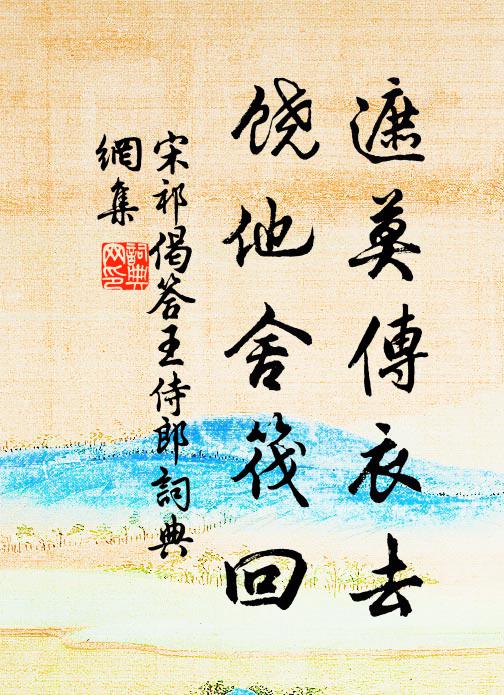 遮莫傳衣去
饶他舍筏回
宋祁偈答王侍郎詞典
網集
詞典
网印